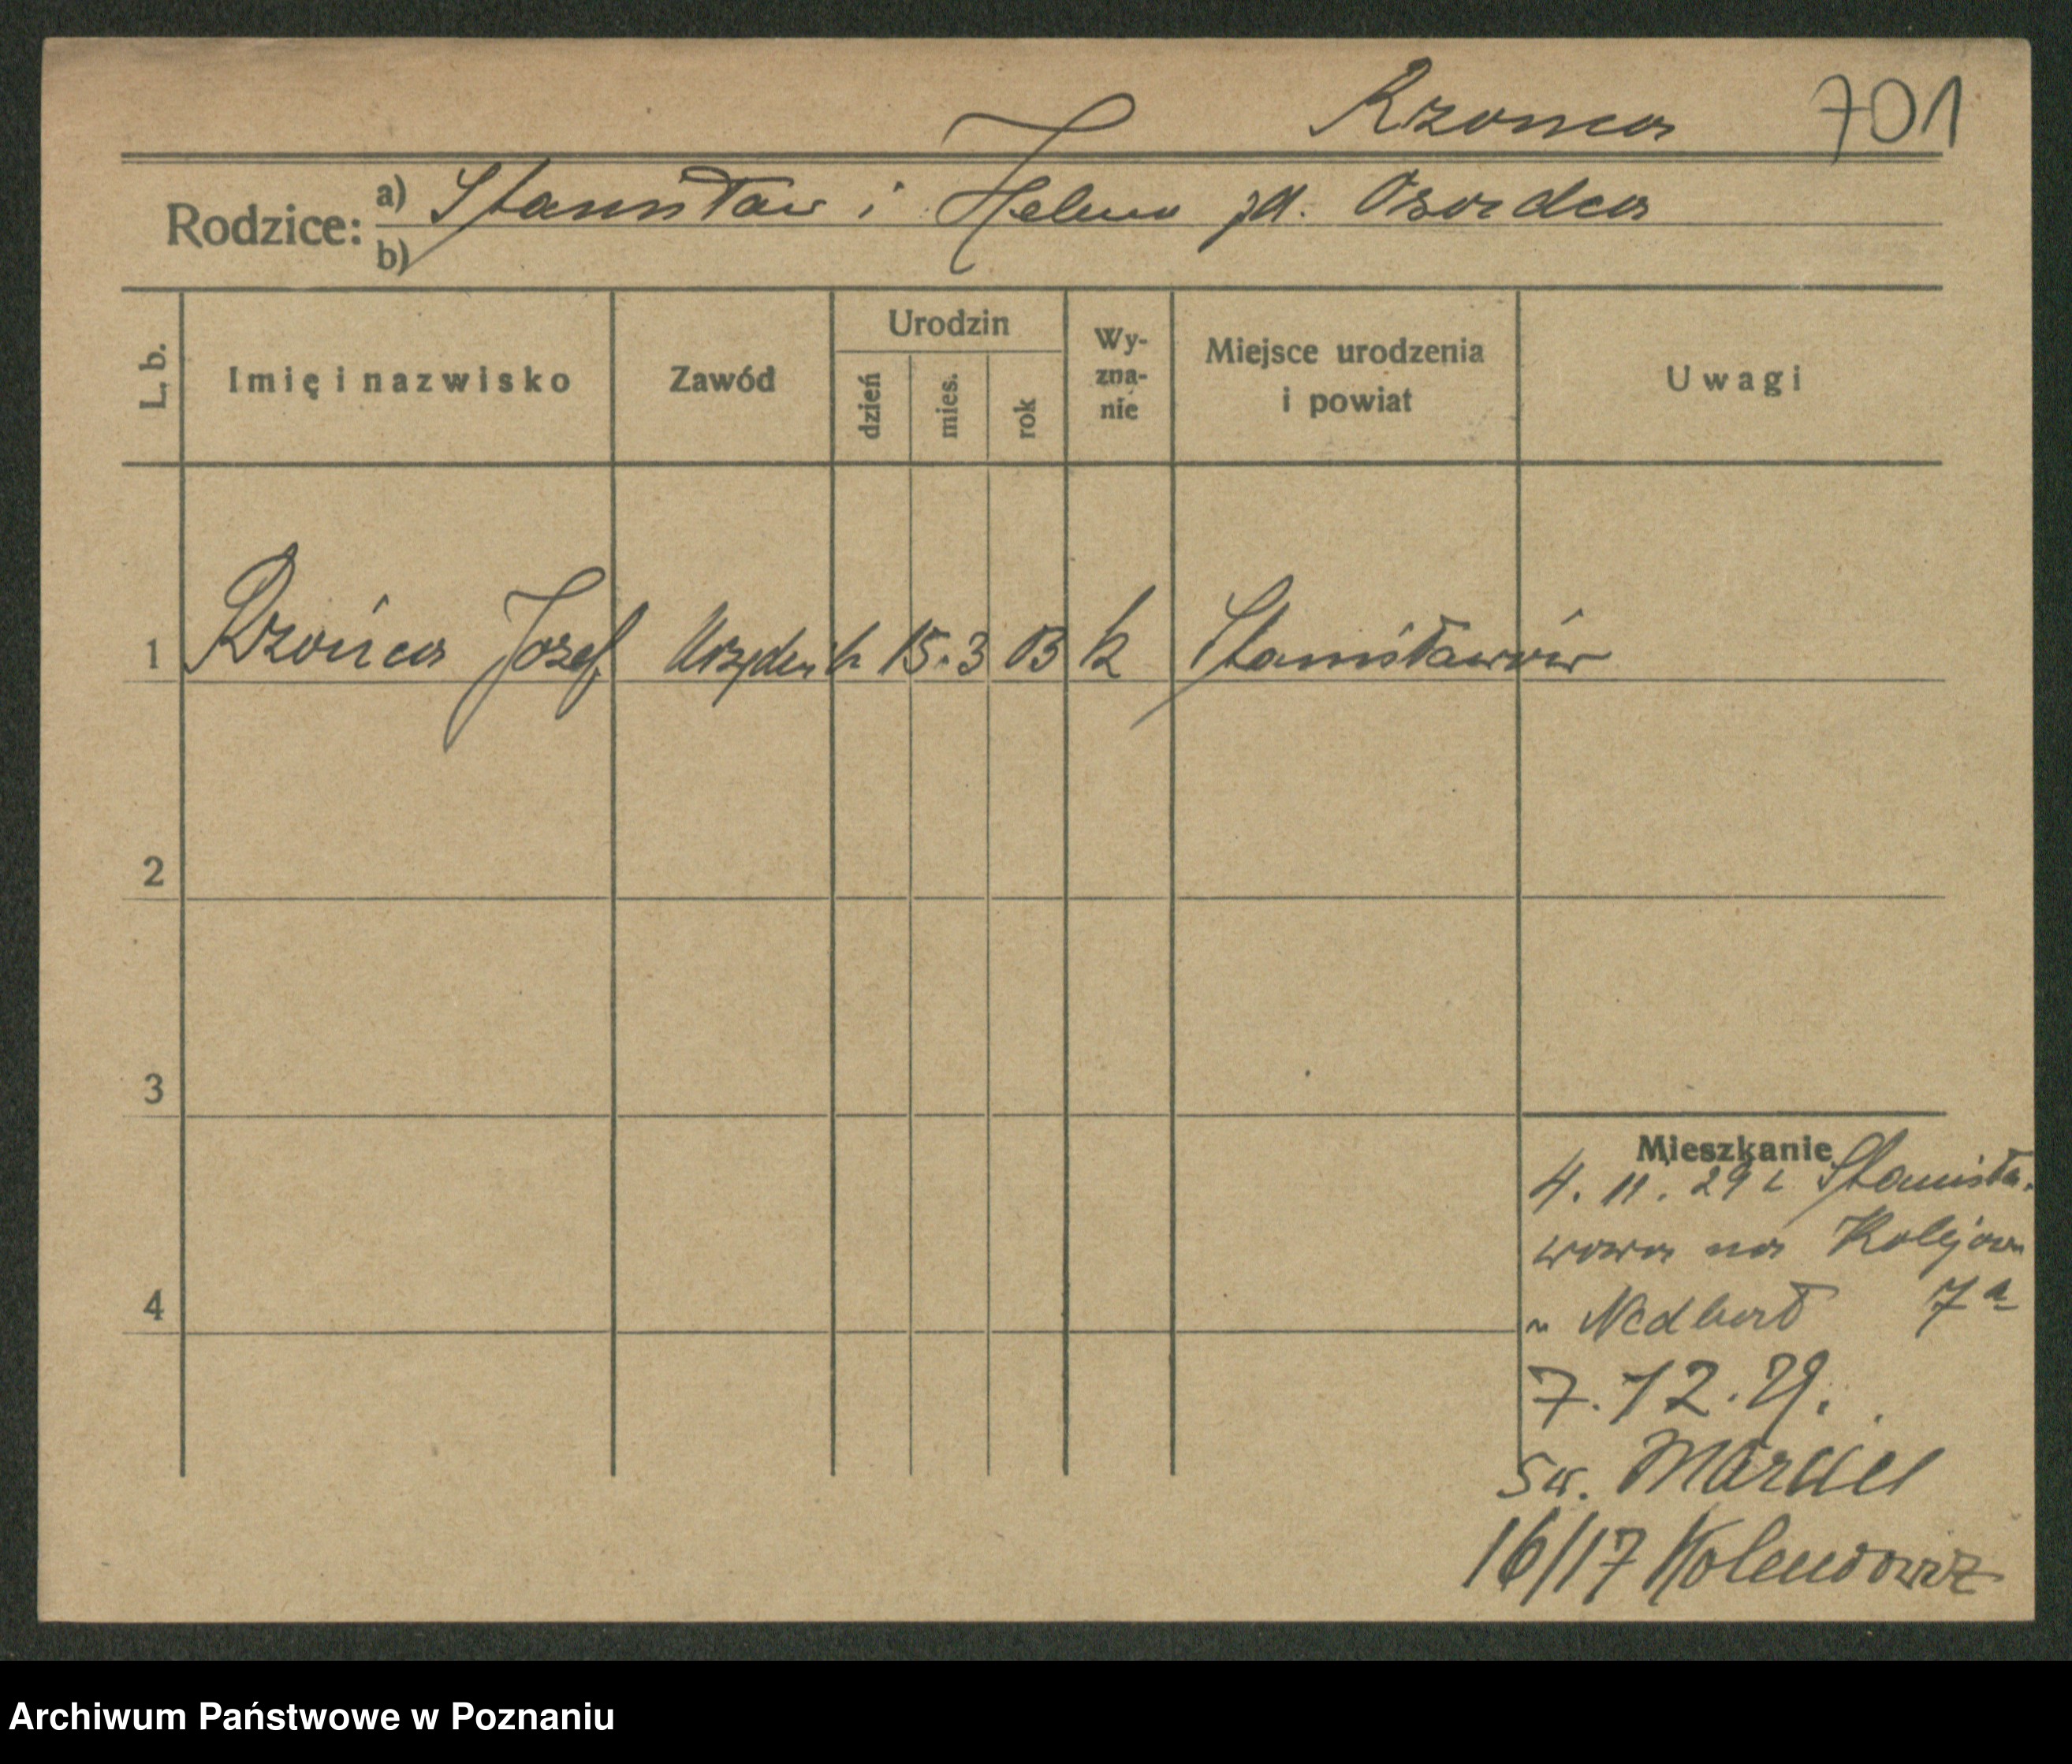 Rzonca 701
Rodzice: a) Stanisław i Helena zd.
b)
L. b. Imię i nazwisko Zawód Urodzin dzień mies. rok Wy-zna-nie Miejsce urodzenia i powiat Uwagi
1 Rzońca Józef Urzędnik 15. 3 03 k Stanisławów
2
3
4
Mieszkanie
4. 11. 29 z Stanisła-
wowa na Kolejowa
7a
7. 12. 29.
Św. Marcin
16/17
Archiwum Państwowe w Poznaniu